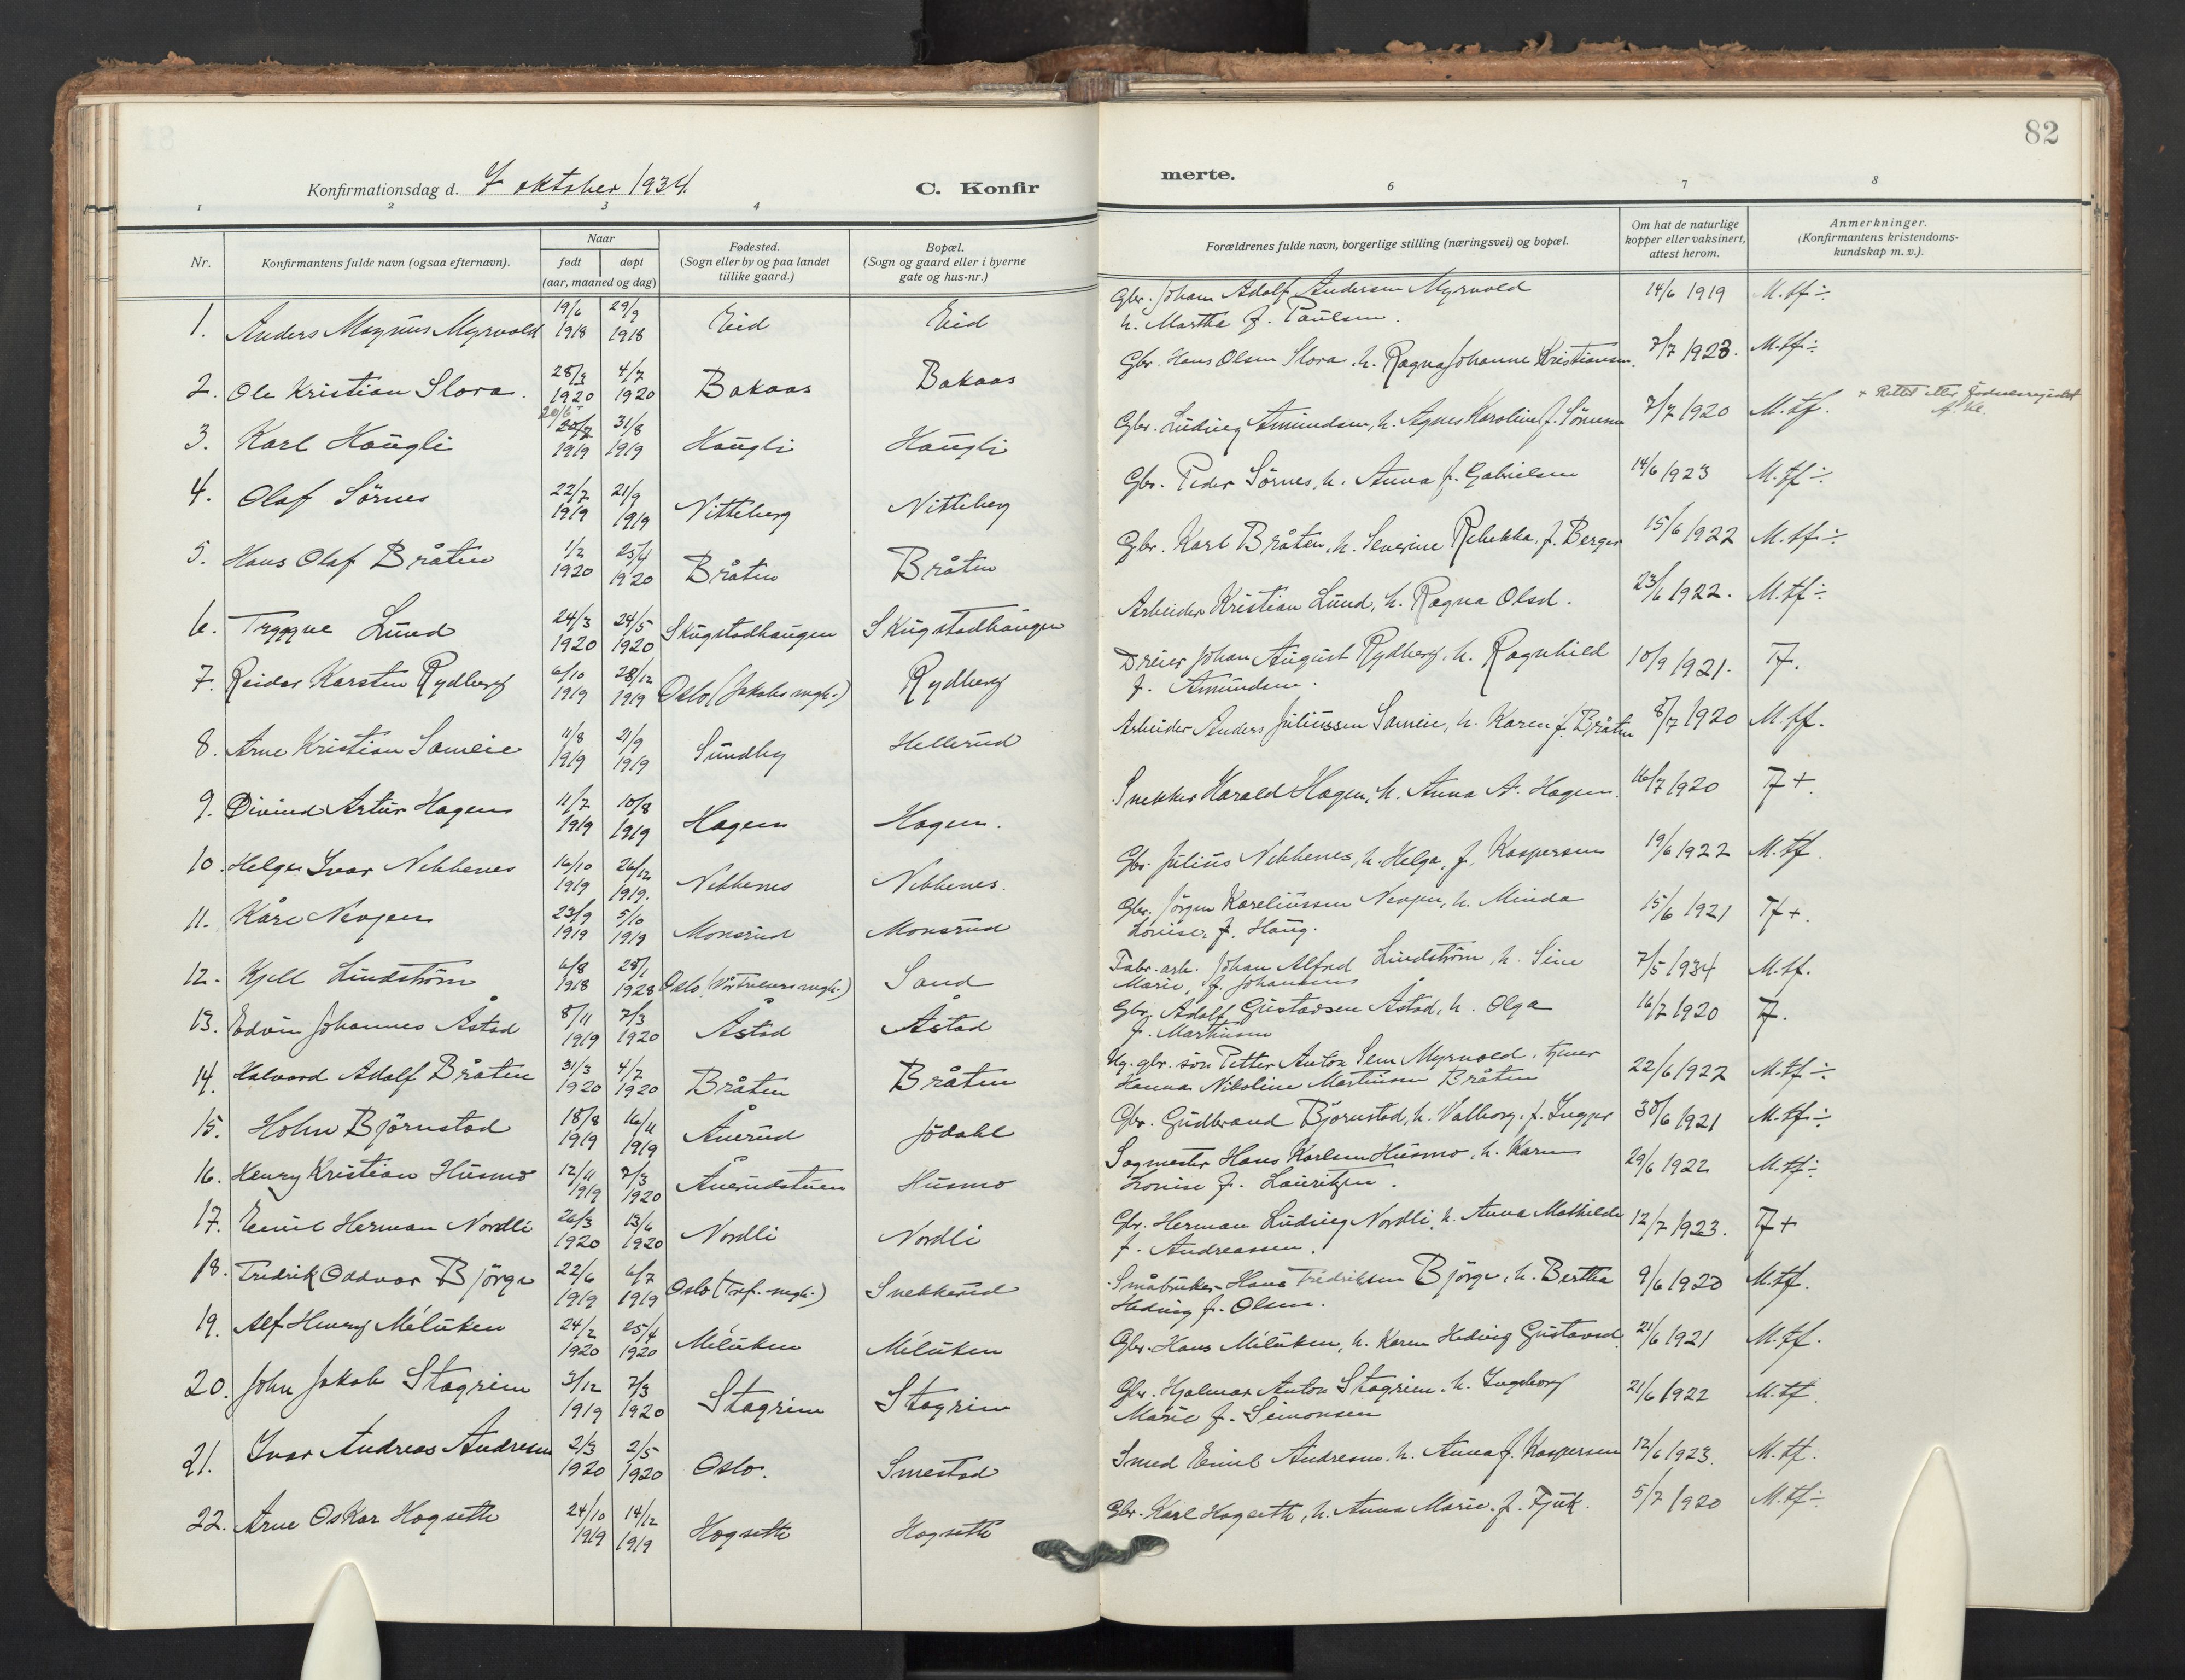 82
Konfirmationsdag d. 7 oktober 1934.
C. Konfirmerte.
1 2 3 4 6 7 8
Nr.
Konfirmantens fulde navn (ogsaa efternavn).
Naar
født døpt
(aar, maaned og dag)
Fødested.
(Sogn eller by og paa landet
tillike gaard.)
Bopæl.
(Sogn og gaard eller i byerne
gate og hus-nr.)
Forældrenes fulde navn, borgerlige stilling (næringsvei) og bopæl.
Om hat de naturlige
kopper eller vaksinert,
attest herom.
Anmerkninger.
(Konfirmantens kristendoms-
kundskap m. v.).
1. Anders Magnus Myrvold 19/6 1918 29/9 1918 Eid Eid Gbr. Johan Adolf Andersen Myrvold 14/6 1919 M.tf ÷
h. Martha f. Paulsen.
2. Ole Kristian Slora. 28/3 1920 4/7 1920 Bakaas Bakaas Gbr. Hans Olsen Slora. h. Ragna Johanne Kristiansen. 7/7 1923. M.tf ÷
3. Karl Haugli 20/6 1919 31/8 1919 Haugli Haugli Gbr. Ludvig Amundsen, h. Agnes Karoline f. Sørensen 7/7 1920 M.tf. + Rettet etter fødselsregistret
4. Olaf Sörnes 22/7 1919 21/9 1919 Nitteberg Nitteberg Gbr. Peder Sörnes, h. Anna f. Gabrielsen 14/6 1923 M.tf ÷
5. Hans Olaf Bråten 1/2 1920 25/4 1920 Bråten Bråten Gbr. Karl Bråten, h. Severine Rebekka, f. Berger 15/6 1922 M.tf ÷
6. Trygve Lund 24/3 1920 24/5 1920 Skugstadhaugen Skugstadhaugen Arbeider Kristian Lund, h. Ragna Olsd. 23/6 1922. M.tf ÷
7. Reidar Karsten Rydberg 6/10 1919 28/12 1919 Oslo (Jakobs mgh.) Rydberg Dreier Johan August Rydberg, h. Ragnhild 10/9 1921. Tf.
f. Amundsen.
8. Arne Kristian Sameie 11/8 1919 21/9 1919 Sundby Hellerud Arbeider Anders Juliussen Sameie, h. Karen f. Bråten 8/7 1920 M.tf.
9. Øivind Artur Hagen 11/7 1919 10/8 1919 Hagen Hagen. Snekker Harald Hagen, h. Anna A. Hagen. 16/7 1920 Tf +.
10. Helge Ivar Nebbenes 16/10 1919 26/12 1919. Nebbenes Nebbenes. Gbr. Julius Nebbenes, h. Helga, f. Kaspersen 19/6 1922 M.tf.
11. Kåre Nevjen 23/9 1919 5/10 1919 Monsrud Monsrud Gbr. Jörgen Kareliussen Nevjen, h. Minda 15/6 1921 Tf +.
Lovise, f. Haug.
12. Kjell Lindström 6/8 1918 28/1 1928 Oslo (Vår Frelsers mgh.) Sand Fabr.arb. Johan Alfred Lindström, h. Sine 7/5 1934 M.tf.
Marie, f. Johansen
13. Edvin Johannes Åstad 8/11 1919 7/3 1920 Åstad Åstad Gbr. Adolf Gustavsen Åstad, h. Olga 16/7 1920 Tf.
f. Martinsen
14. Halvard Adolf Bråten 31/3 1920 4/7 1920 Bråten Bråten Ug. gbr. sön Petter Anton Sem Myrvold, tjener 22/6 1922 M.tf ÷
Hanna Nikoline Martinsen Bråten
15. Holm Björnstad 18/8 1919 16/11 1919 Ånerud Jödahl Gbr. Gudbrand Björnstad, h. Valborg, f. Ingjer 30/6 1921 M.tf ÷
16. Henry Kristian Husmo 12/11 1919 7/3 1920 Ånerudstuen Husmo Sagmester Hans Karlsen Husmo, h. Karen 29/6 1922 M.tf ÷
Lovise f. Lauritzen.
17. Emil Herman Nordli 26/3 1920 13/6 1920 Nordli Nordli Gbr. Herman Ludvig Nordli, h. Anna Mathilde 12/7 1923. Tf +
f. Andreassen.
18. Fredrik Oddvar Björge 22/6 1919 6/7 1919 Oslo (Tref. mgh.) Snekkerud Småbruker Hans Fredriksen Björge, h. Bertha 9/6 1920 M.tf.
Hedvig f. Olsen.
19. Alf Henry Méluken 24/2 1920 25/4 1920 Méluken Méluken Gbr. Hans Méluken, h. Karen Hedvig Gustavsd. 21/6 1921 M.tf.
20. John Jakob Stagrim 3/12 1919 7/3 1920 Stagrim Stagrim Gbr. Hjalmar Anton Stagrim, h. Ingeborg 21/6 1922 M.tf.
Marie f. Simonsen
21. Ivar Andreas Andresen 2/3 1920 2/5 1920 Oslo. Smestad Smed Emil Andresen, h. Anna f. Kaspersen 12/6 1923. M.tf.
22. Arne Oskar Hogseth 24/10 1919 14/12 1919 Hogseth Hogseth Gbr. Karl Hogseth, h. Anna Marie. f. Fjuk. 5/7 1920 M.tf ÷